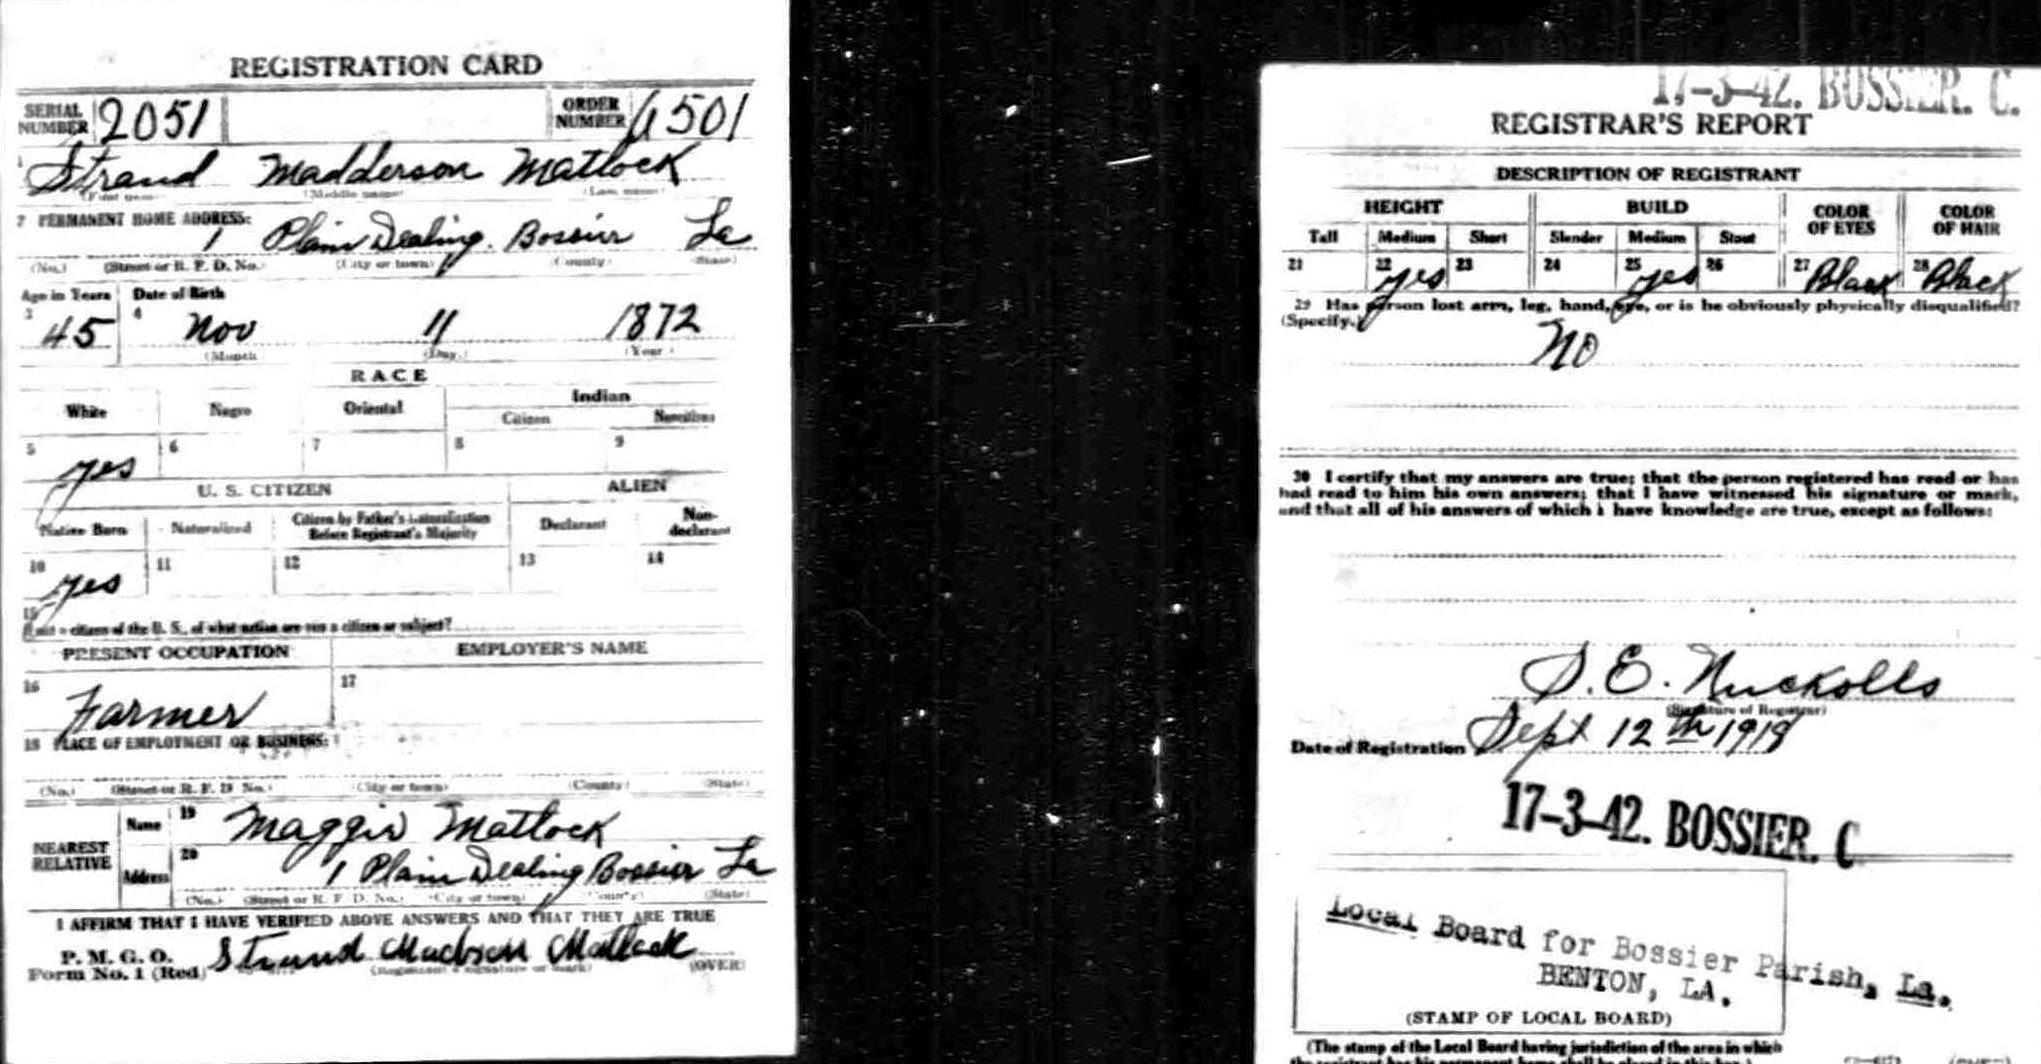 REGISTRATION CARD
SERIAL NUMBER 2051 ORDER NUMBER 6501
1 Strand Madderson Matlock
(First name) (Middle name) (Last name)
2 PERMANENT HOME ADDRESS:
1 Plain Dealing Bossier La
(No.) (Street or R. F. D. No.) (City or town) (County) (State)
Age in Years Date of Birth
3 45 4 Nov 11 1872
(Month) (Day.) (Year.)
RACE
White Negro Oriental Indian
Citizen Noncitizen
5 yes 6 7 8 9
U. S. CITIZEN ALIEN
Native Born Naturalized Citizen by Father's Naturalization Before Registrant's Majority Declarant Non-declarant
10 yes 11 12 13 14
15
If not a citizen of the U. S., of what nation are you a citizen or subject?
PRESENT OCCUPATION EMPLOYER'S NAME
16 Farmer 17
18 PLACE OF EMPLOYMENT OR BUSINESS:
(No.) (Street or R. F. D. No.) (City or town) (County) (State)
NEAREST RELATIVE Name 19 Maggie Matlock
Address 20 1 Plain Dealing Bossier La
(No.) (Street or R. F. D. No.) (City or town) (County) (State)
I AFFIRM THAT I HAVE VERIFIED ABOVE ANSWERS AND THAT THEY ARE TRUE
P. M. G. O.
Form No. 1 (Red) Strand Madison Matlock
(Registrant's signature or mark) (OVER)
17-3-42. BOSSIER. C.
REGISTRAR'S REPORT
DESCRIPTION OF REGISTRANT
HEIGHT BUILD COLOR OF EYES COLOR OF HAIR
Tall Medium Short Slender Medium Stout
21 22 yes 23 24 25 yes 26 27 Black 28 Black
29 Has person lost arm, leg, hand, eye, or is he obviously physically disqualified?
(Specify.)
No
30 I certify that my answers are true; that the person registered has read or has
had read to him his own answers; that I have witnessed his signature or mark,
and that all of his answers of which I have knowledge are true, except as follows:
S. E. Nuckolls
(Signature of Registrar)
Date of Registration Sept 12th 1918
17-3-42. BOSSIER. C
Local Board for Bossier Parish, La.
BENTON, LA.
(STAMP OF LOCAL BOARD)
(The stamp of the Local Board having jurisdiction of the area in which
the registrant has his permanent home shall be placed in this box.)